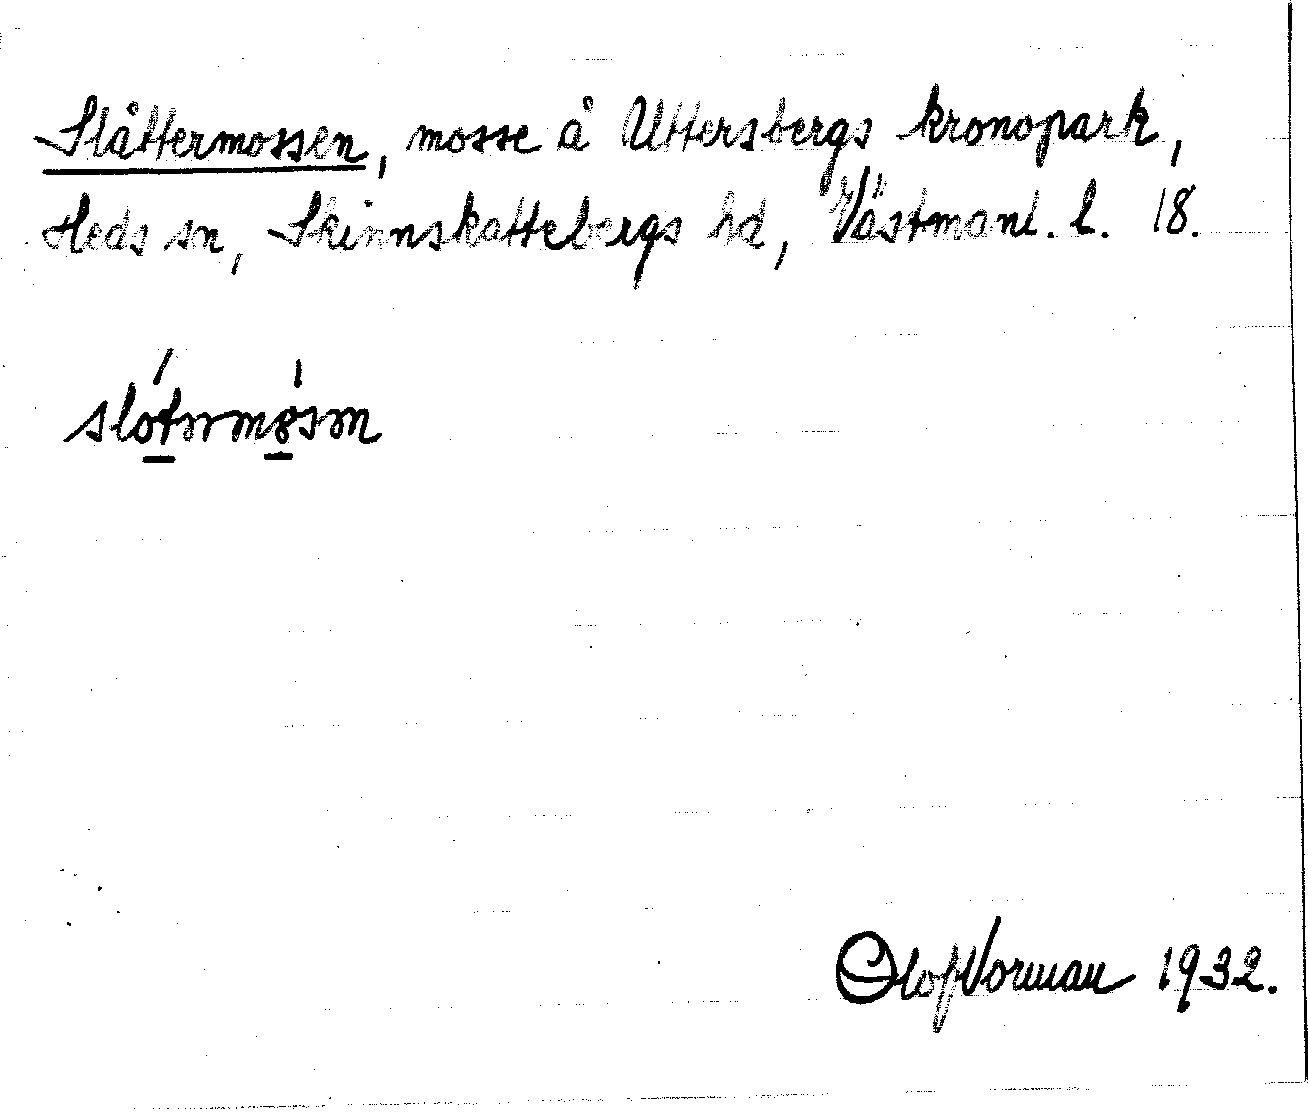 Slåttermossen, mosse å Uttersbergs kronopark,
Heds sn, Skinnskattebergs hd, Västmanl. l. 18.
slotərmøsən
Olof Vorman 1932.